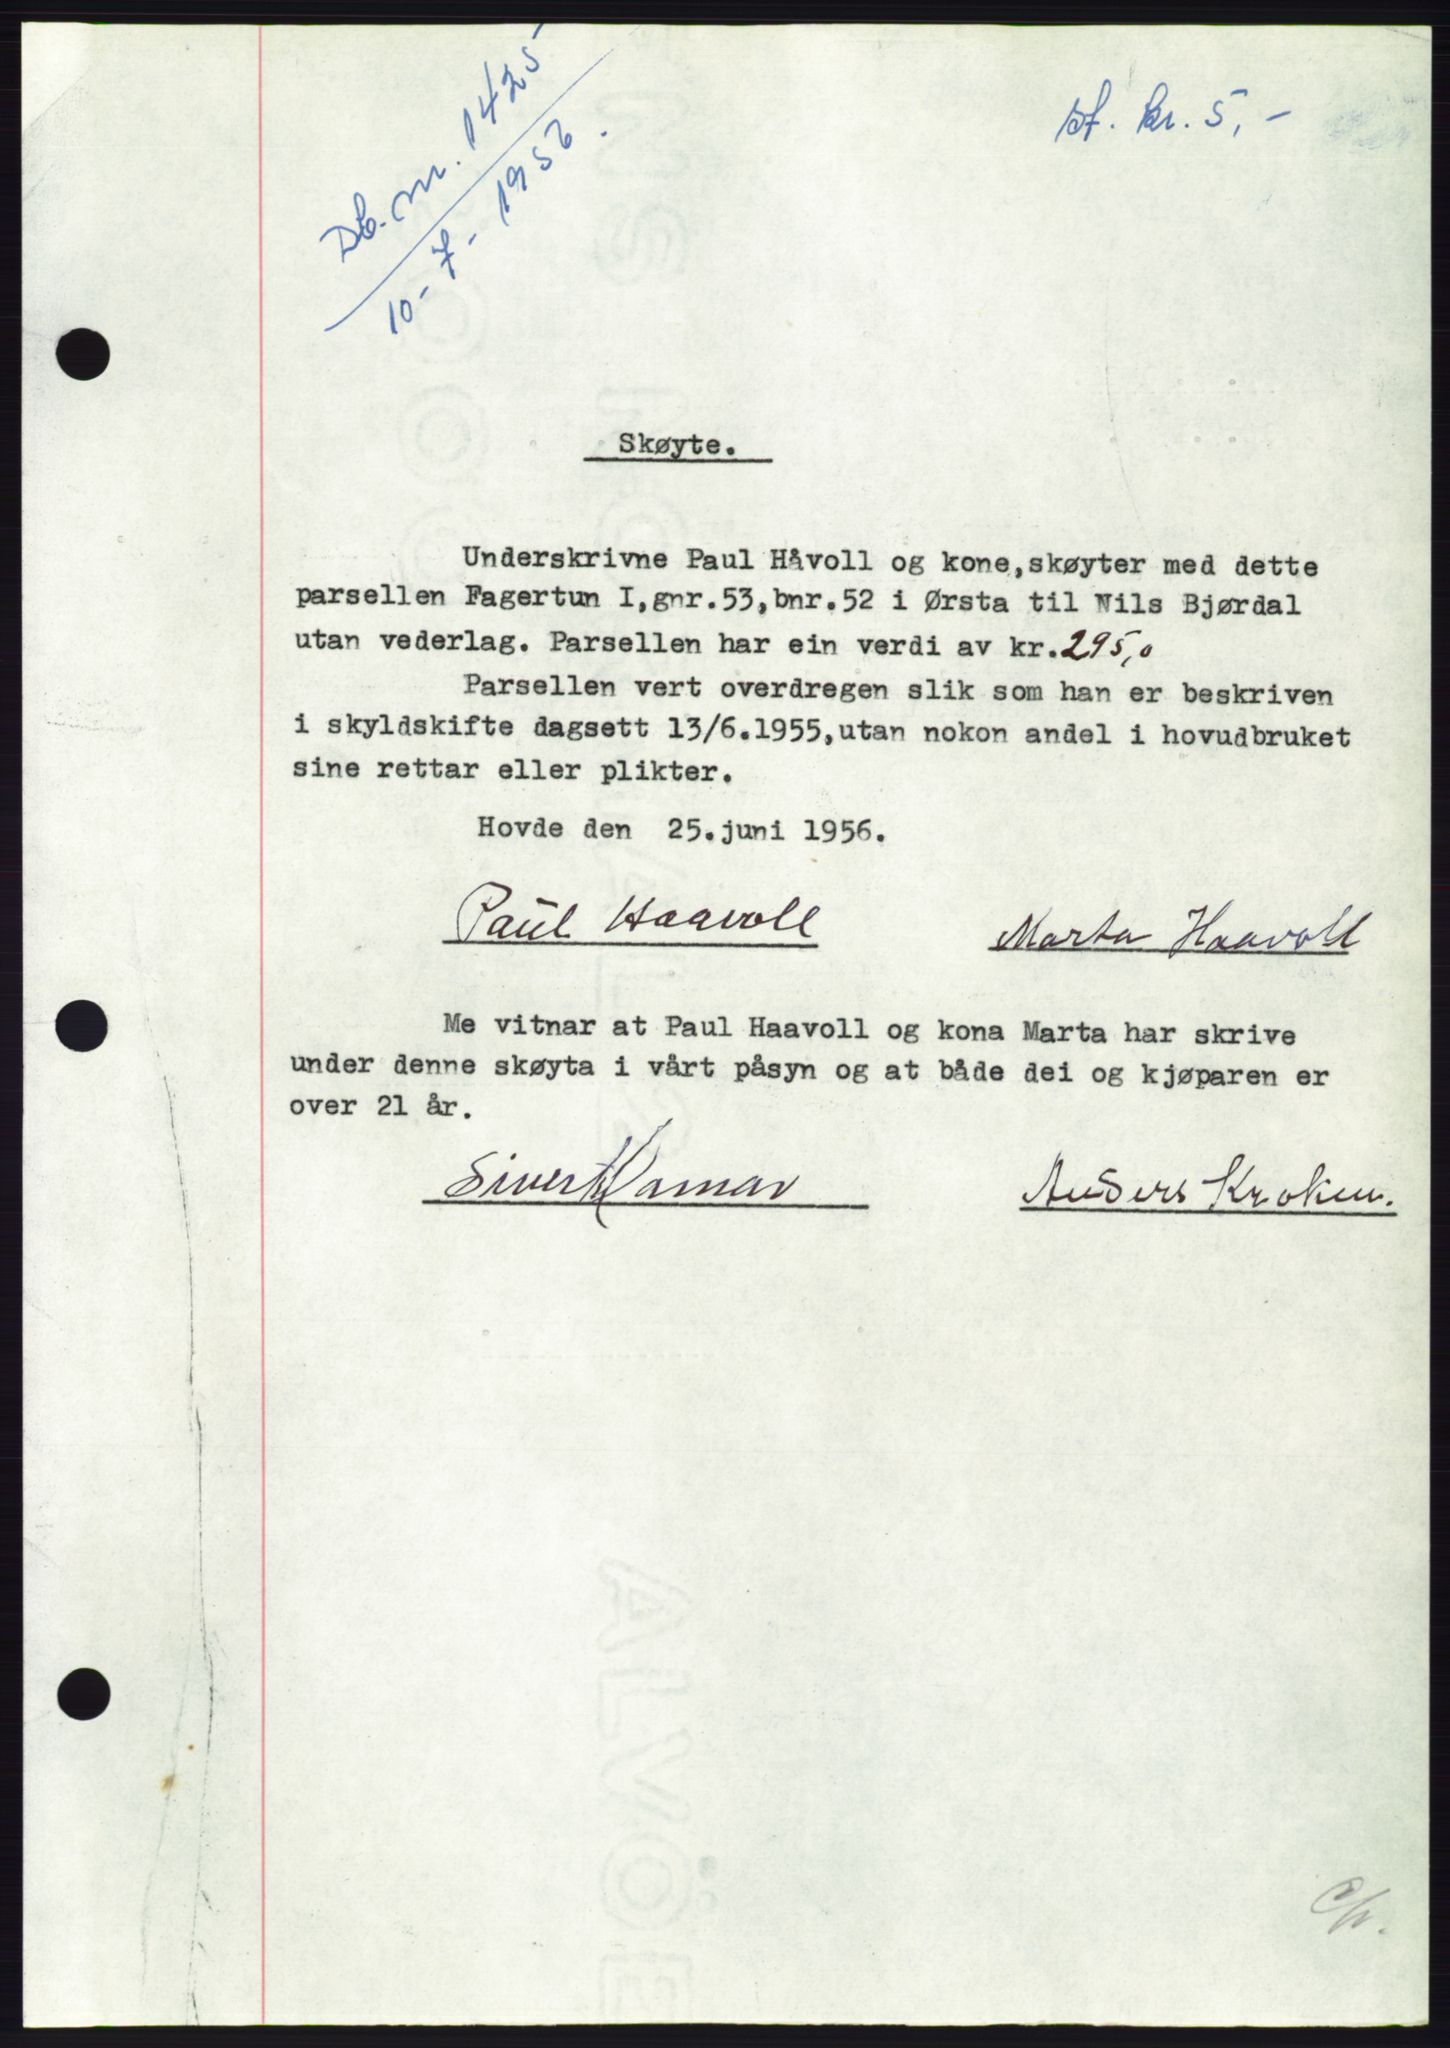 Db. nr. 1425
10-7-1956.
st. kr. 5,-
Skøyte.
Underskrivne Paul Håvoll og kone,skøyter med dette
parsellen Fagertun I,gnr.53,bnr.52 i Ørsta til Nils Bjørdal
utan vederlag. Parsellen har ein verdi av kr.295,0
Parsellen vert overdregen slik som han er beskriven
i skyldskifte dagsett 13/6.1955,utan nokon andel i hovudbruket
sine rettar eller plikter.
Hovde den 25.juni 1956.
Paul Haavoll
Marta Haavoll
Me vitnar at Paul Haavoll og kona Marta har skrive
under denne skøyta i vårt påsyn og at både dei og kjøparen er
over 21 år.
Sivert Hamar
Anders Kroken.